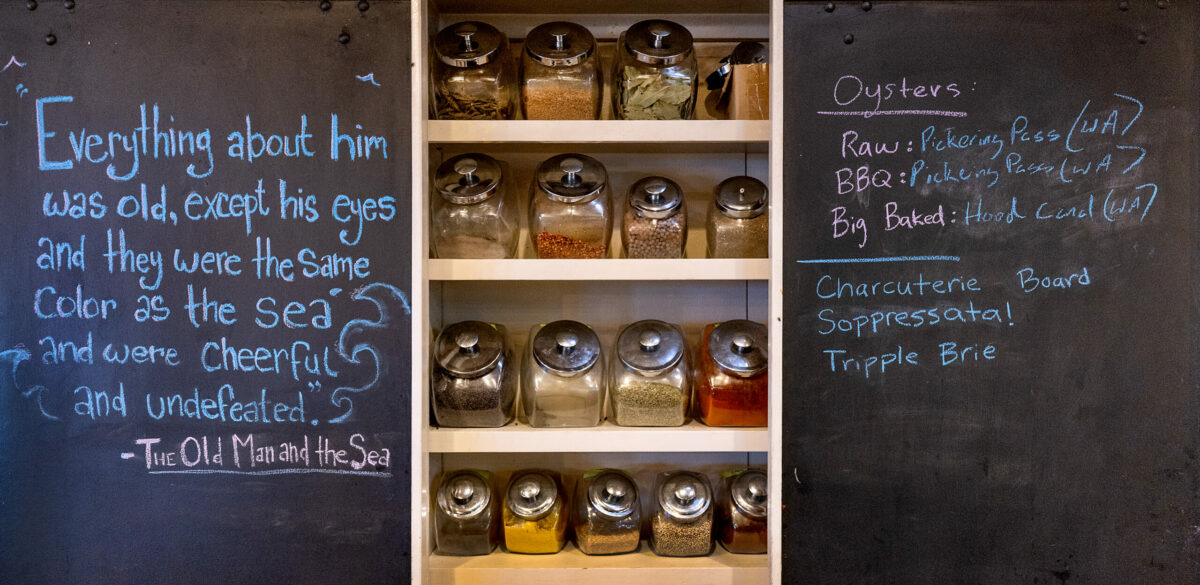 "Everything about him
was old, except his eyes
and they were the same
Color as the sea
and were cheerful
and undefeated."
-THE Old Man and the Sea
Oysters:
Raw: Pickering Pass (WA)
BBQ: Pickering Pass (WA)
Big Baked: Hood Canal (WA)
Charcuterie Board
Soppressata!
Tripple Brie